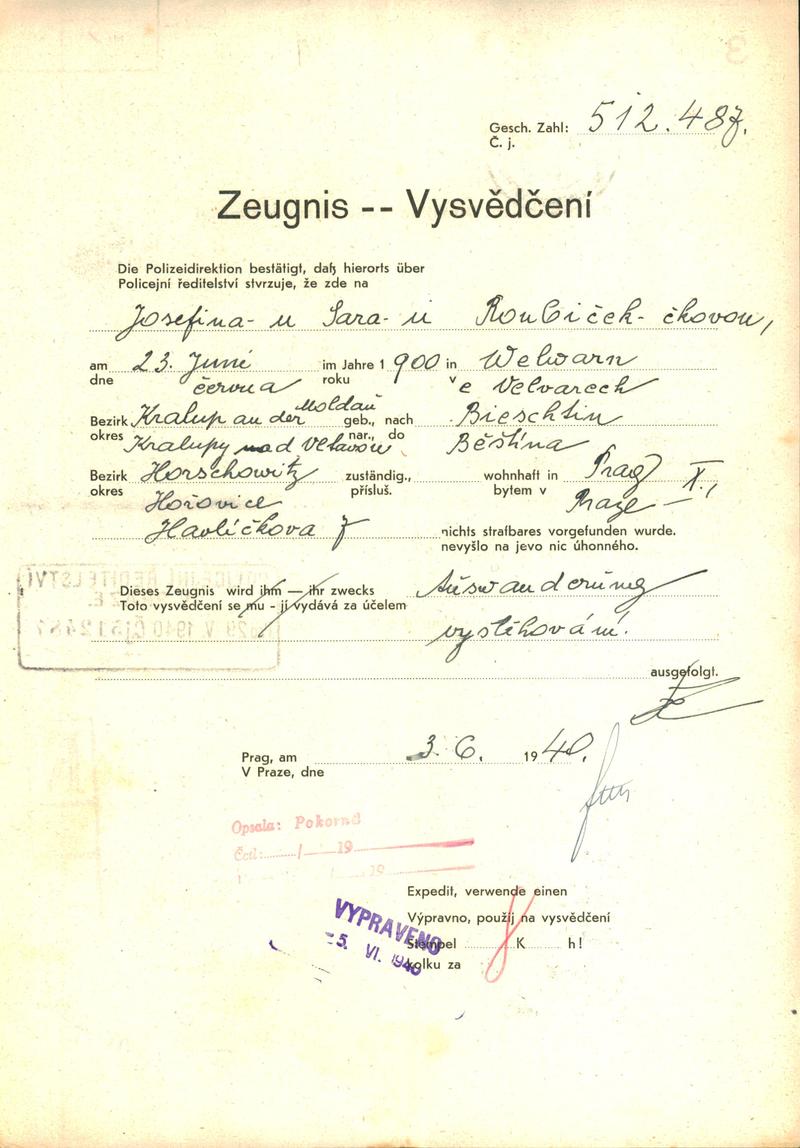 Gesch. Zahl: 512.487.
Č. j.
Zeugnis -- Vysvědčení
Die Polizeidirektion bestätigt, daß hierorts über
Policejní ředitelství stvrzuje, že zde na
Josefina- u Sara- u Roubiček- čkovou,
am 23. Juni im Jahre 1900 in Welwarn
dne června roku ve Velvarech
Bezirk Kralup an der Moldau geb., nach Bieschtin
okres Kralupy nad Vltavou nar., do Běštína
Bezirk Horschowitz zuständig., wohnhaft in Prag X.,
okres Hořovice přísluš. bytem v Praze —
Havlíčkova 7 nichts strafbares vorgefunden wurde.
nevyšlo na jevo nic úhonného.
Dieses Zeugnis wird ihm — ihr zwecks Auswanderung
Toto vysvědčení se mu - jí vydává za účelem
vystěhování.
ausgefolgt.
Prag, am 3. 6. 1940.
V Praze, dne
Opsala: Pokorná
Četl: / 19
/ 19
Expedit, verwende einen
Výpravno, použij na vysvědčení
Stempel K h!
kolku za
VYPRAVENO
5. VI. 1940